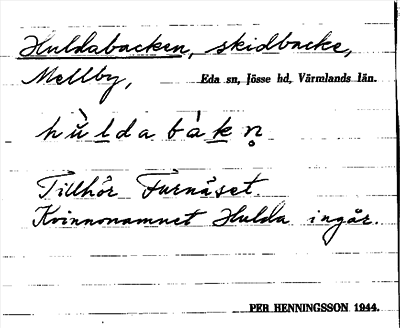 Huldabacken, skidbacke,
Mellby, Eda sn, Jösse hd, Värmlands län.
hùlda bàkn̥
Tillhör Furnäset.
Kvinnonamnet Hulda ingår.
PER HENNINGSSON 1944.